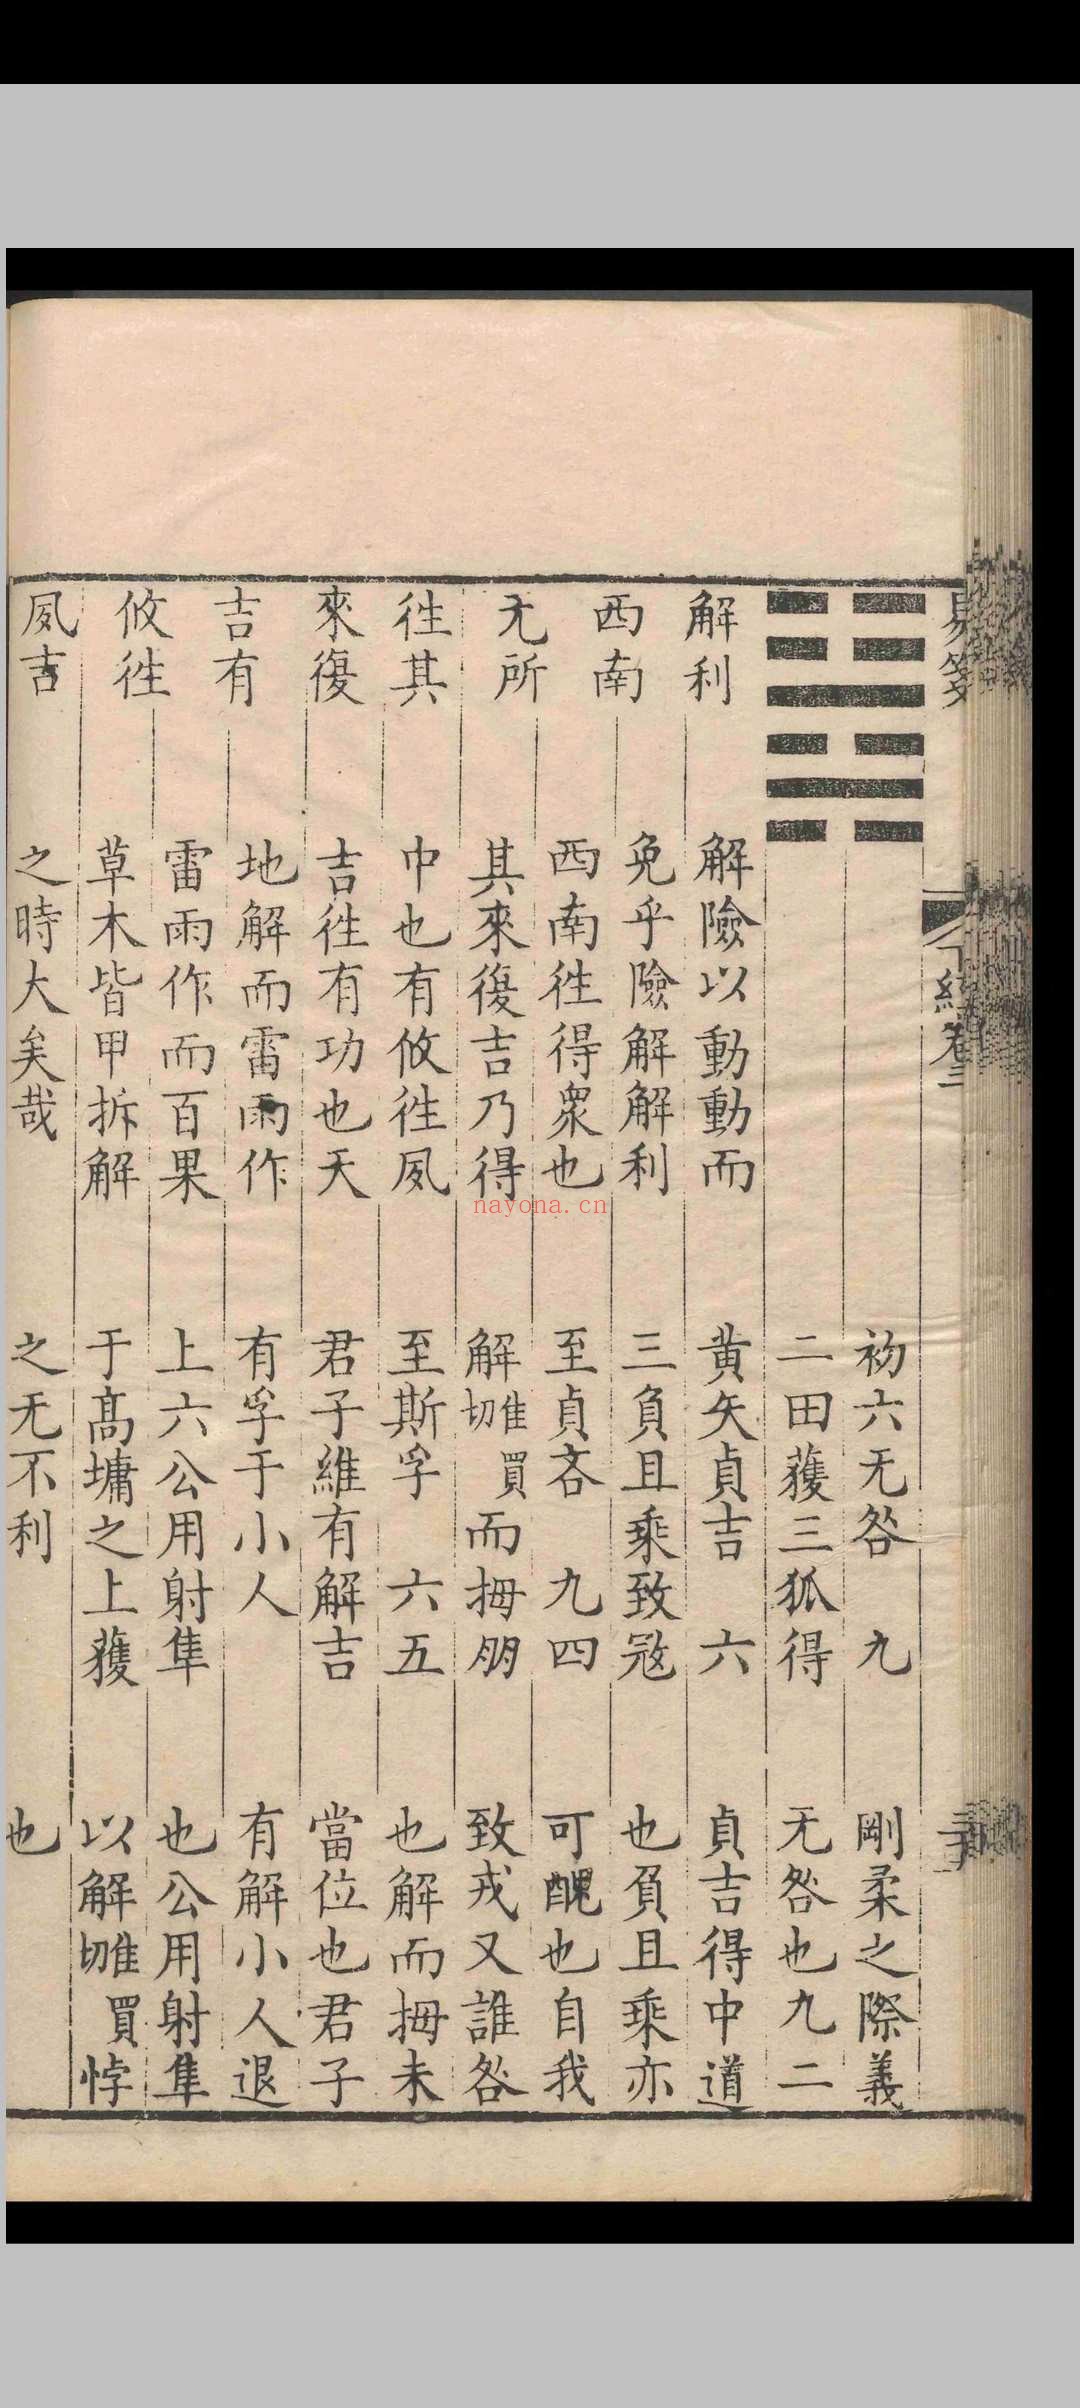 易箋
下經卷三
解利
西南
无所
往其
來復
吉有
攸往
夙吉
解險以動動而
免乎險解解利
西南往得衆也
其來復吉乃得
中也有攸往夙
吉往有功也天
地解而雷雨作
雷雨作而百果
草木皆甲拆解
之時大矣哉
初六无咎 九
二田獲三狐得
黄矢貞吉 六
三負且乘致寇
至貞吝 九四
解佳買切而拇朋
至斯孚 六五
君子維有解吉
有孚于小人
上六公用射隼
于髙墉之上獲
之无不利
剛柔之際義
无咎也九二
貞吉得中道
也負且乘亦
可醜也自我
致戎又誰咎
也解而拇未
當位也君子
有解小人退
也公用射隼
以解佳買切悖
也
nayona.cn